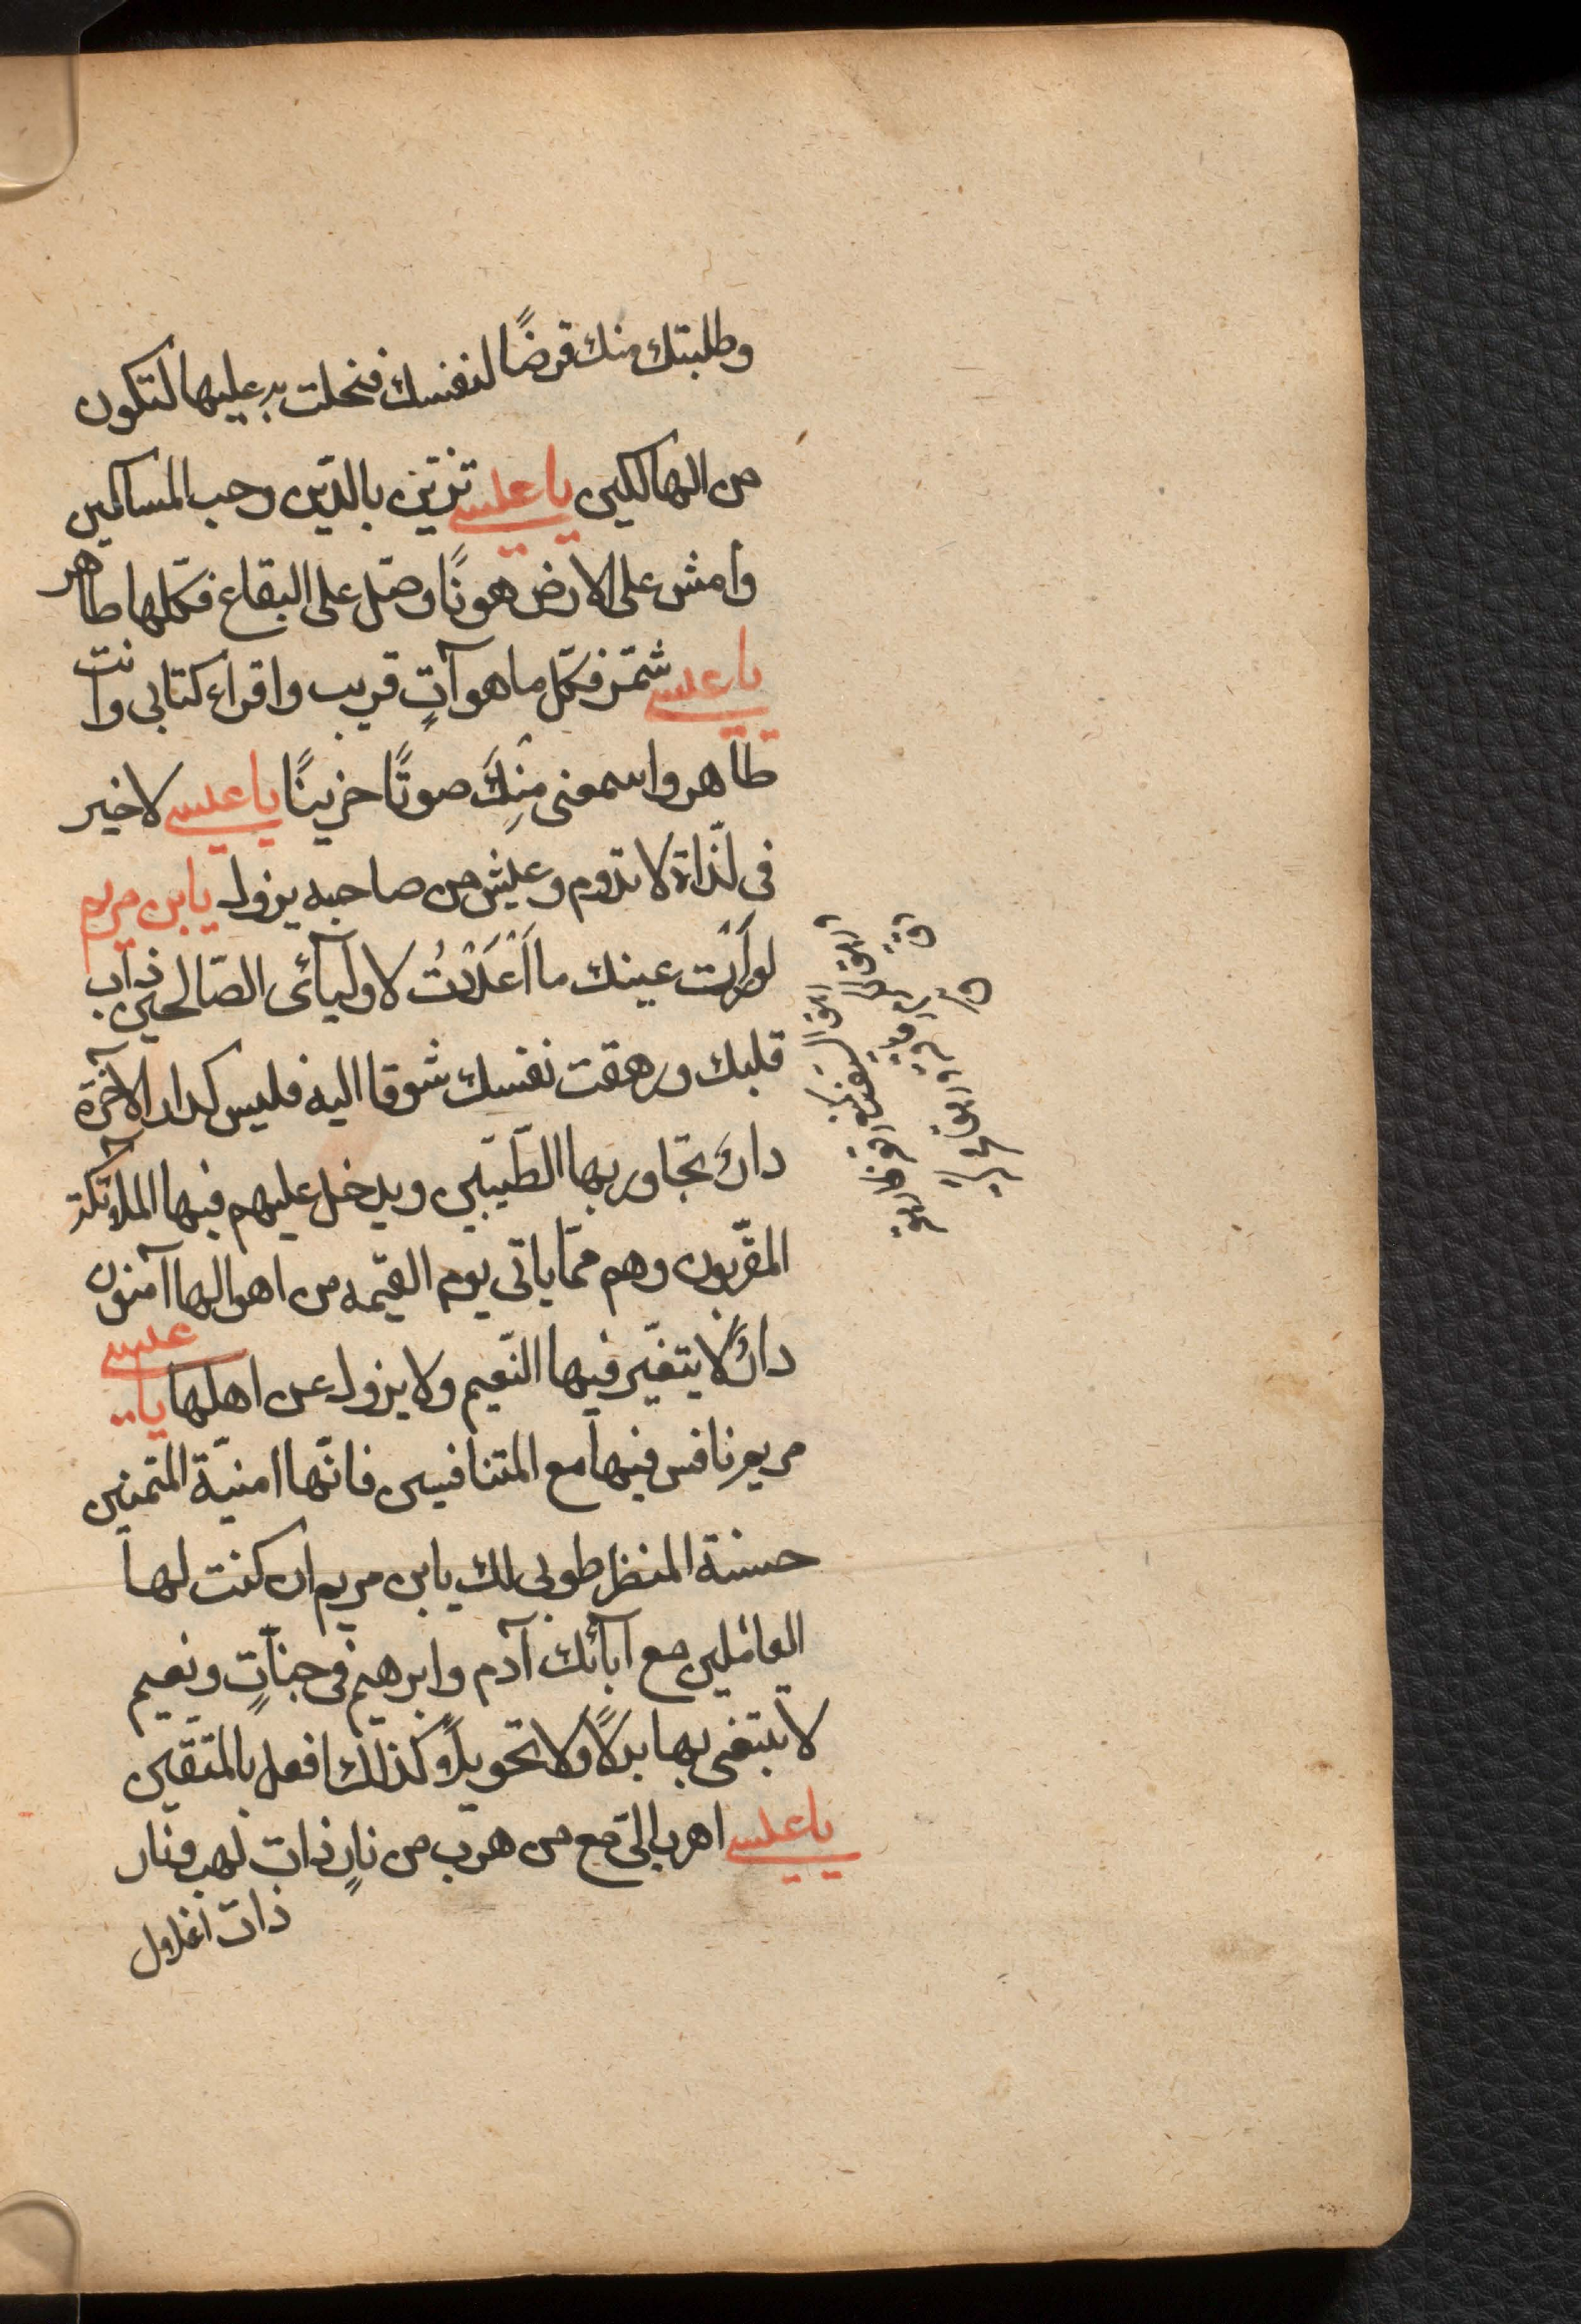 وطلبتك منك قرضًا لنفسك فنحلت به عليها لتكون
من الهالكين يا عيسى تزيّن بالدّين وحب المساكين
وامش على الارض هونًا وصّل على البقاع فكلّها طاهر
يا عيسى شمّر فكلّ ما هو آتٍ قريب واقراء كتابى وانت
طاهر واسمعنى مِنكَ صوتًا حزينًا يا عيسى لا خير
فى لذّاة لا تدوم وعيش من صاحبه يزول يا بن مريم
لو رَأَت عينك ما اَعْدَدْتُ لاوليآئى الصّالحين ذاب
قلبك وزهقت نفسك شوقا اليه فليس كدار الآخرة
دارٌ تجاور بها الطّيبّين ويدخل عليهم فيها الملائكة
المقرّبون وهم ممّا ياتى يوم القيمه من اهوالها آمنون
دارٌ لا يتغيّر فيها النّعيم ولا يزول عن اهلها يا عيسى
مريم نافس فيها مع المتنافسين فانّها امنيّة المتمنين
حسنة المنظر طوبى لك يا بن مريم ان كنت لها
العاملين مع آبائك آدم وابرهيم فى جنّاتٍ ونعيم
لا تبتغى بها بدلًا ولا تحويلًا وكذلك افعل بالمتّقين
يا عيسى اهرب الىّ مع من هرب من نارٍ ذات لهب ونار
ذات اغلال